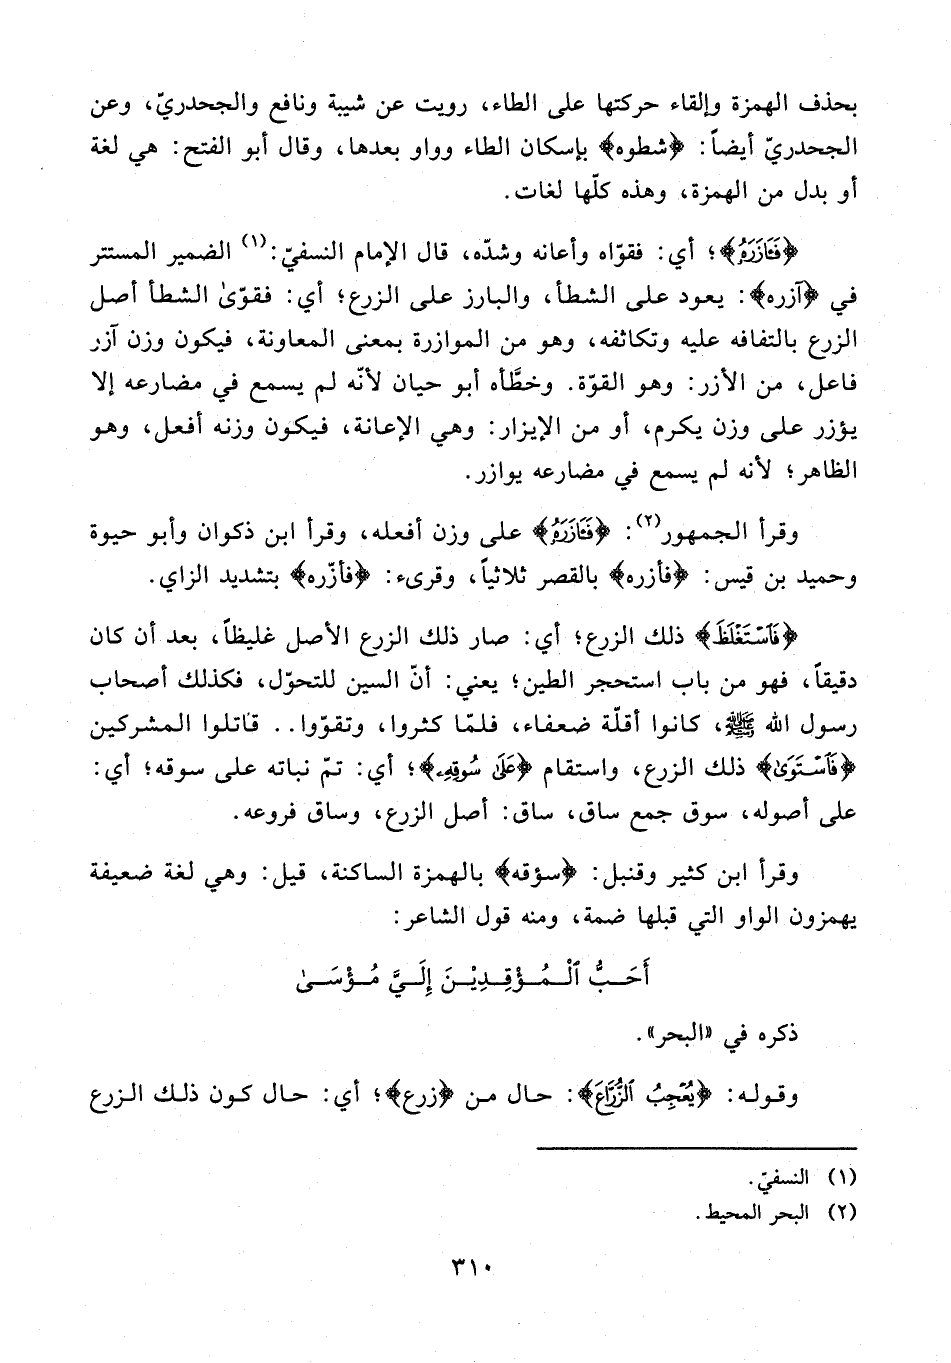 بحذف الهمزة وإلقاء حركتها على الطاء، رويت عن شيبة ونافع والجحدريّ، وعن
الجحدريّ أيضاً: ﴿شطوه﴾ بإسكان الطاء وواو بعدها، وقال أبو الفتح: هي لغة
أو بدل من الهمزة، وهذه كلّها لغات.
﴿فَـَٔازَرَهُۥ﴾؛ أي: فقوّاه وأعانه وشدّه، قال الإمام النسفيّ:(١) الضمير المستتر
في ﴿آزره﴾: يعود على الشطأ، والبارز على الزرع؛ أي: فقوّىٰ الشطأ أصل
الزرع بالتفافه عليه وتكاثفه، وهو من الموازرة بمعنى المعاونة، فيكون وزن آزر
فاعل، من الأزر: وهو القوّة. وخطَّأه أبو حيان لأنّه لم يسمع في مضارعه إلا
يؤزر على وزن يكرم، أو من الإيزار: وهي الإعانة، فيكون وزنه أفعل، وهو
الظاهر؛ لأنه لم يسمع في مضارعه يوازر.
وقرأ الجمهور(٢): ﴿فَـَٔازَرَهُۥ﴾ على وزن أفعله، وقرأ ابن ذكوان وأبو حيوة
وحميد بن قيس: ﴿فأزره﴾ بالقصر ثلاثياً، وقرىء: ﴿فأزّره﴾ بتشديد الزاي.
﴿فَٱسْتَغْلَظَ﴾ ذلك الزرع؛ أي: صار ذلك الزرع الأصل غليظاً، بعد أن كان
دقيقاً، فهو من باب استحجر الطين؛ يعني: أنّ السين للتحوّل، فكذلك أصحاب
رسول الله ﷺ، كانوا أقلّة ضعفاء، فلمّا كثروا، وتقوّوا.. قاتلوا المشركين
﴿فَٱسْتَوَىٰ﴾ ذلك الزرع، واستقام ﴿عَلَىٰ سُوقِهِۦ﴾؛ أي: تمّ نباته على سوقه؛ أي:
على أصوله، سوق جمع ساق، ساق: أصل الزرع، وساق فروعه.
وقرأ ابن كثير وقنبل: ﴿سؤقه﴾ بالهمزة الساكنة، قيل: وهي لغة ضعيفة
يهمزون الواو التي قبلها ضمة، ومنه قول الشاعر:
أَحَبُّ ٱلْمُؤْقِدِيْنَ إِلَيَّ مُؤْسَىٰ
ذكره في «البحر».
وقوله: ﴿يُعْجِبُ ٱلزُّرَّاعَ﴾: حال من ﴿زرع﴾؛ أي: حال كون ذلك الزرع
(١) النسفيّ.
(٢) البحر المحيط.
٣١٠